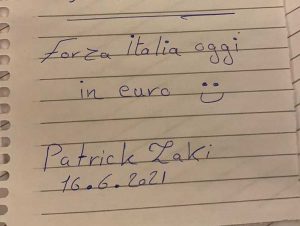 Forza italia oggi
in euro :)
Patrick Zaki
16.6.2021